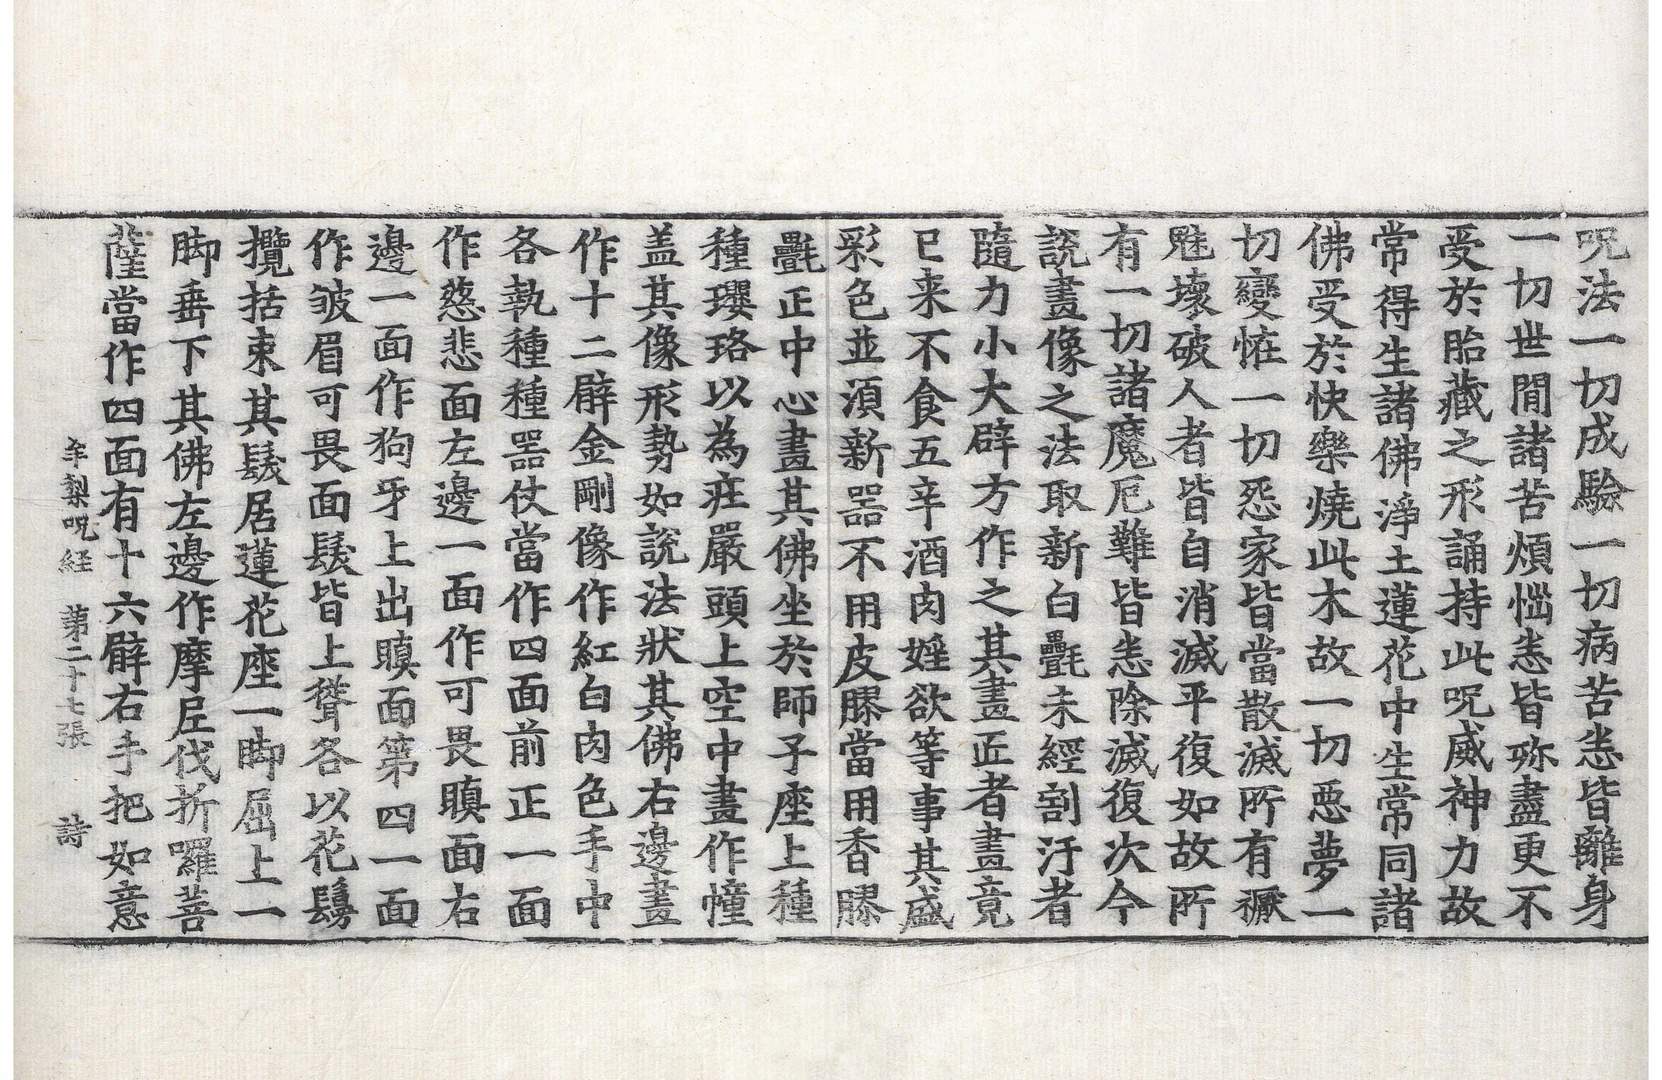 呪法一切成驗一切病苦悉皆離身
一切世間諸苦煩惱悉皆弥盡更不
受於胎藏之形誦持此呪威神力故
常得生諸佛淨土蓮花中生常同諸
佛受於快樂燒此木故一切惡夢一
切變恠一切怨家皆當散滅所有穤
魅壞破人者皆自消滅平復如故所
有一切諸魔厄難皆悉除滅復次今
說畫像之法取新白㲲未經割汙者
隨力小大㢸方作之其畫匠者畫竟
已来不食五辛酒肉婬欲等事其盛
彩色並須新器不用皮膠當用香膠
㲲正中心畫其佛坐於師子座上種
種瓔珞以為莊嚴頭上空中畫作幢
盖其像形勢如說法狀其佛右邊畫
作十二臂金剛像作紅白肉色手中
各執種種器仗當作四面前正一面
作慈悲面左邊一面作可畏瞋面右
邊一面作狗牙上出瞋面第四一面
作皺眉可畏面髮皆上聳各以花鬘
攬括束其髮居蓮花座一脚屈上一
脚垂下其佛左邊作摩尼伐折囉菩
薩當作四面有十六臂右手把如意
牟梨呪経 第二十七張 詩